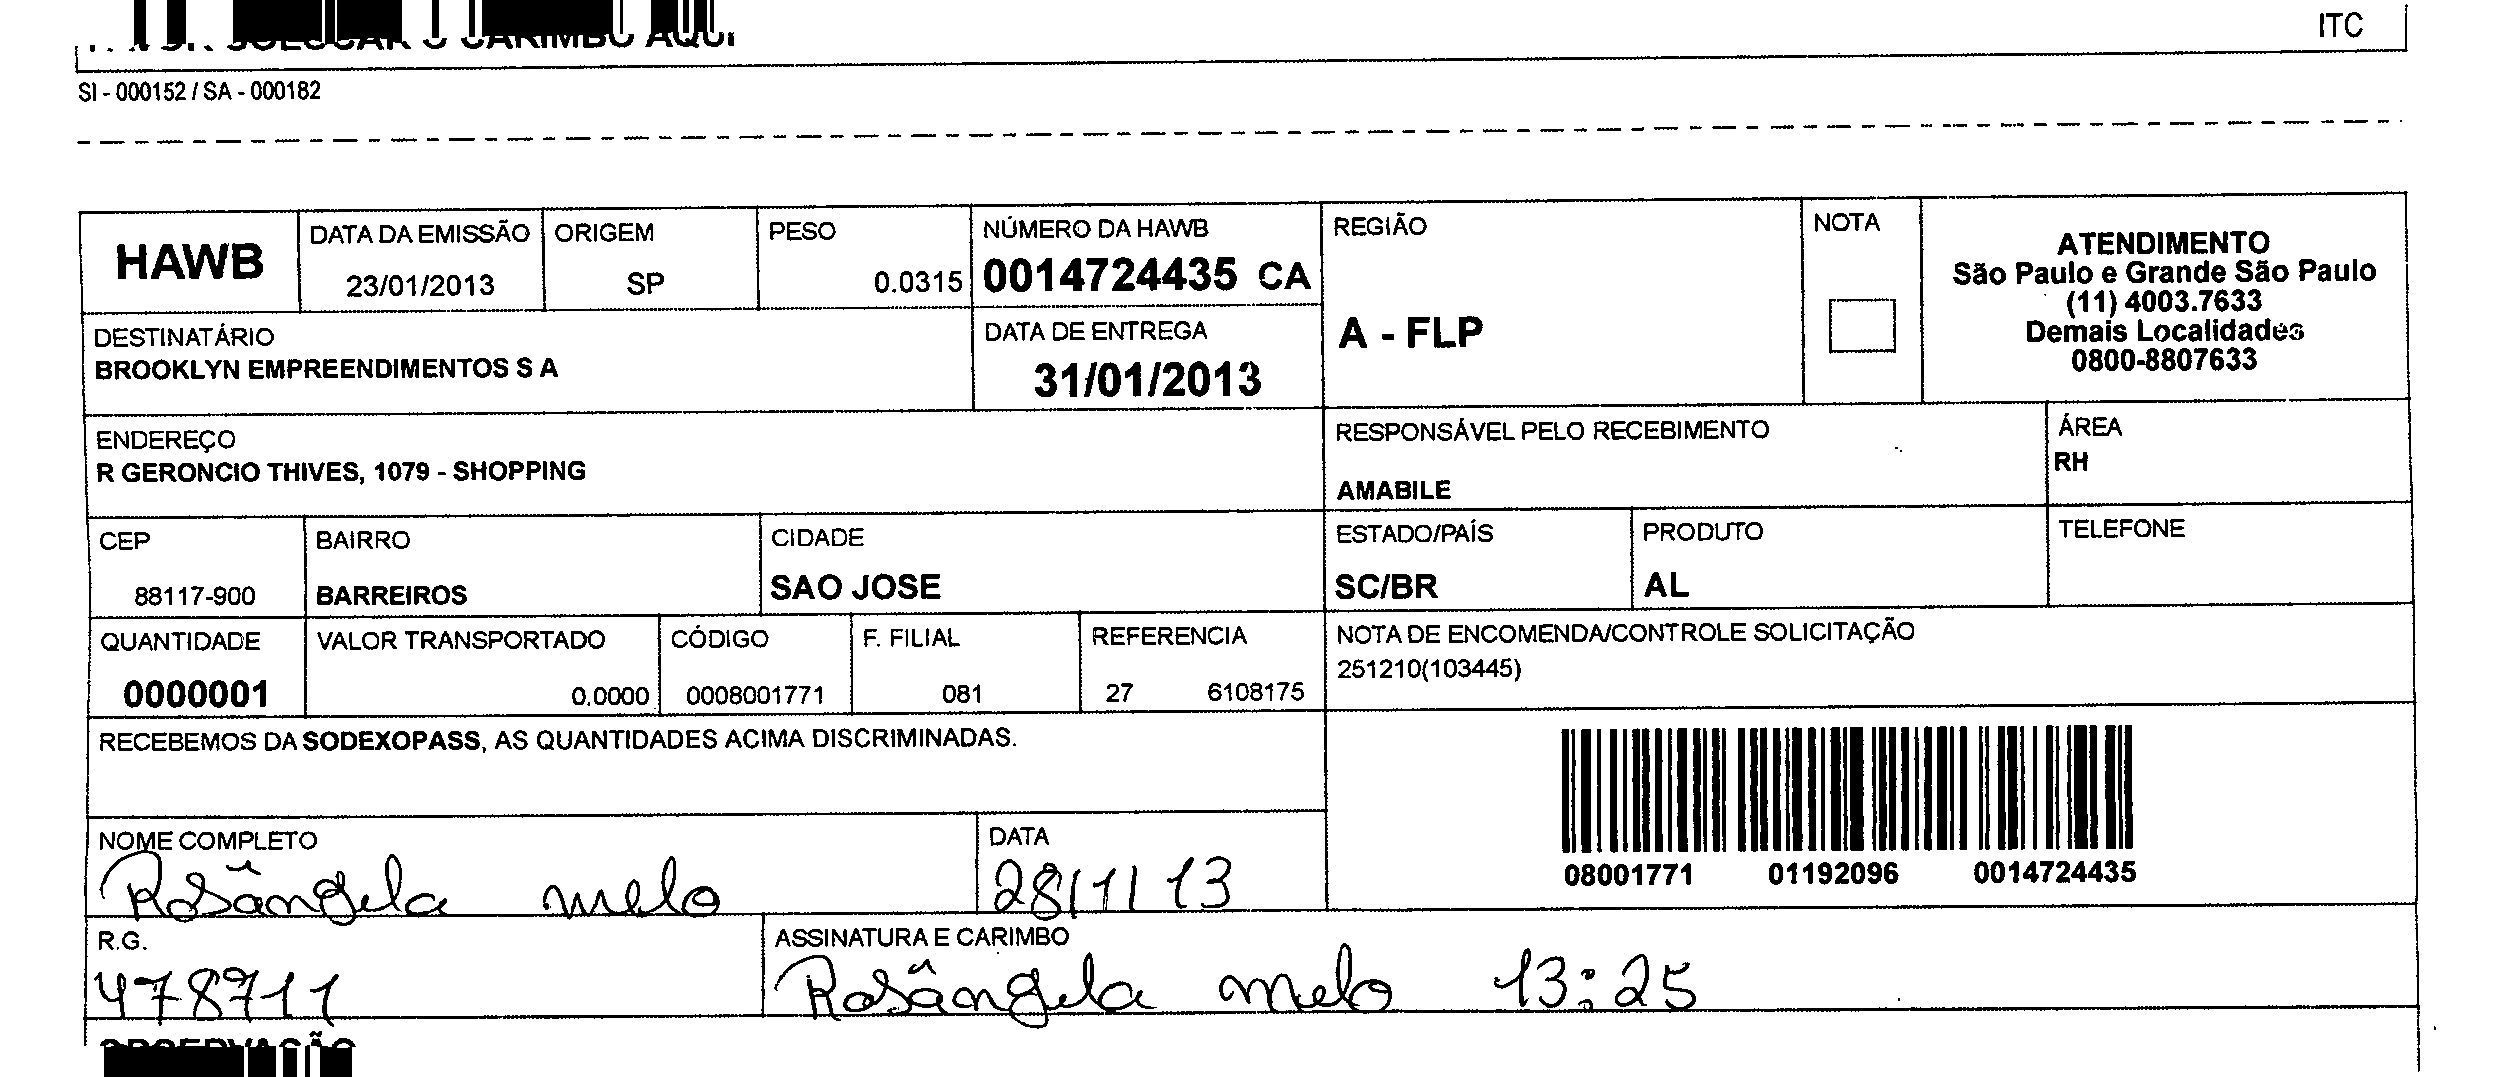 CARIMBO AQUI
ITC
SI - 000152 / SA - 000182
HAWB
DATA DA EMISSÃO
23/01/2013
ORIGEM
SP
PESO
0.0315
NÚMERO DA HAWB
0014724435 CA
REGIÃO
A - FLP
NOTA
ATENDIMENTO
São Paulo e Grande São Paulo
(11) 4003.7633
Demais Localidades
0800-8807633
DESTINATÁRIO
BROOKLYN EMPREENDIMENTOS S A
DATA DE ENTREGA
31/01/2013
ENDEREÇO
R GERONCIO THIVES, 1079 - SHOPPING
RESPONSÁVEL PELO RECEBIMENTO
AMABILE
ÁREA
RH
CEP
88117-900
BAIRRO
BARREIROS
CIDADE
SAO JOSE
ESTADO/PAÍS
SC/BR
PRODUTO
AL
TELEFONE
QUANTIDADE
0000001
VALOR TRANSPORTADO
0.0000
CÓDIGO
0008001771
F. FILIAL
081
REFERENCIA
27 6108175
NOTA DE ENCOMENDA/CONTROLE SOLICITAÇÃO
251210(103445)
RECEBEMOS DA SODEXOPASS, AS QUANTIDADES ACIMA DISCRIMINADAS.
08001771 01192096 0014724435
NOME COMPLETO
Rosângela melo
DATA
28/1/13
R.G.
478711
ASSINATURA E CARIMBO
Rosângela melo 13:25
OBSERVAÇÃO